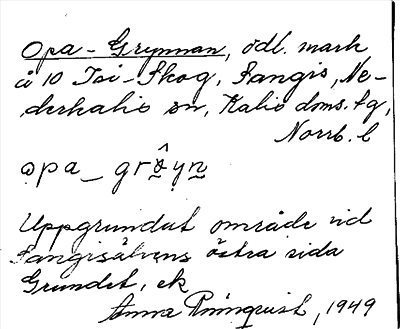 Opa-Grynnan, odl. mark
å 10 Tsi-Skog, Sangis, Ne-
derkalix sn, Kalix doms. fg,
Norrb. l
opa_ grôyn
Uppgrundat område vid
Sangisälvens östra sida
Grundet, ek
Anna Rönnquist, 1949